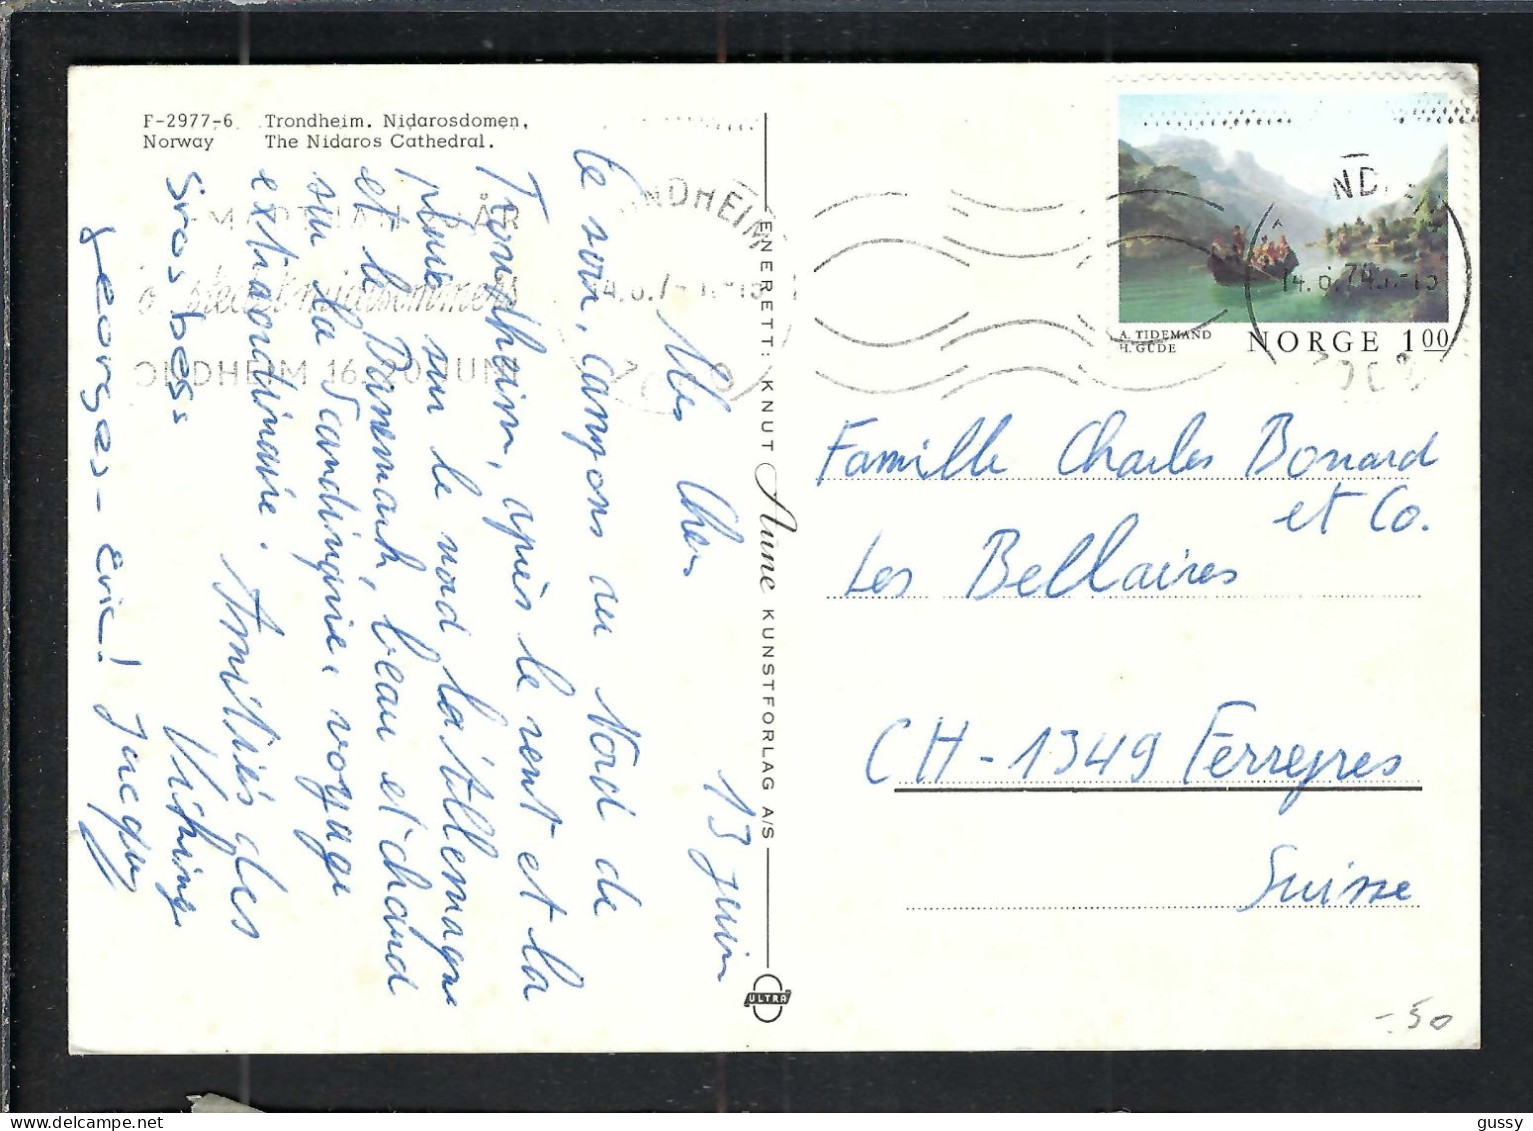 F-2977-6 Trondheim. Nidarosdomen.
Norway The Nidaros Cathedral.
13 juin
Mes Chers
Ce soir, campons au Nord de
Trondheim, après le vent et la
pluie sur le nord la l'Allemagne
et le Danemark, beau et chaud
sur la Scandinavie, voyage
extraordinaire. Amitiés des
Vikings
Gros becs
Georges - Eric! Jacquy
ENERETT: KNUT Aune KUNSTFORLAG A/S
ULTRA
NDHEIM
14.6.7
16. JUNI
14.6.74
A. TIDEMAND
H. GUDE
NORGE 1 00
Famille Charles Bonard
et Co.
Les Bellaires
CH-1349 Ferreyres
Suisse
-.50
delcampe.net
gussy